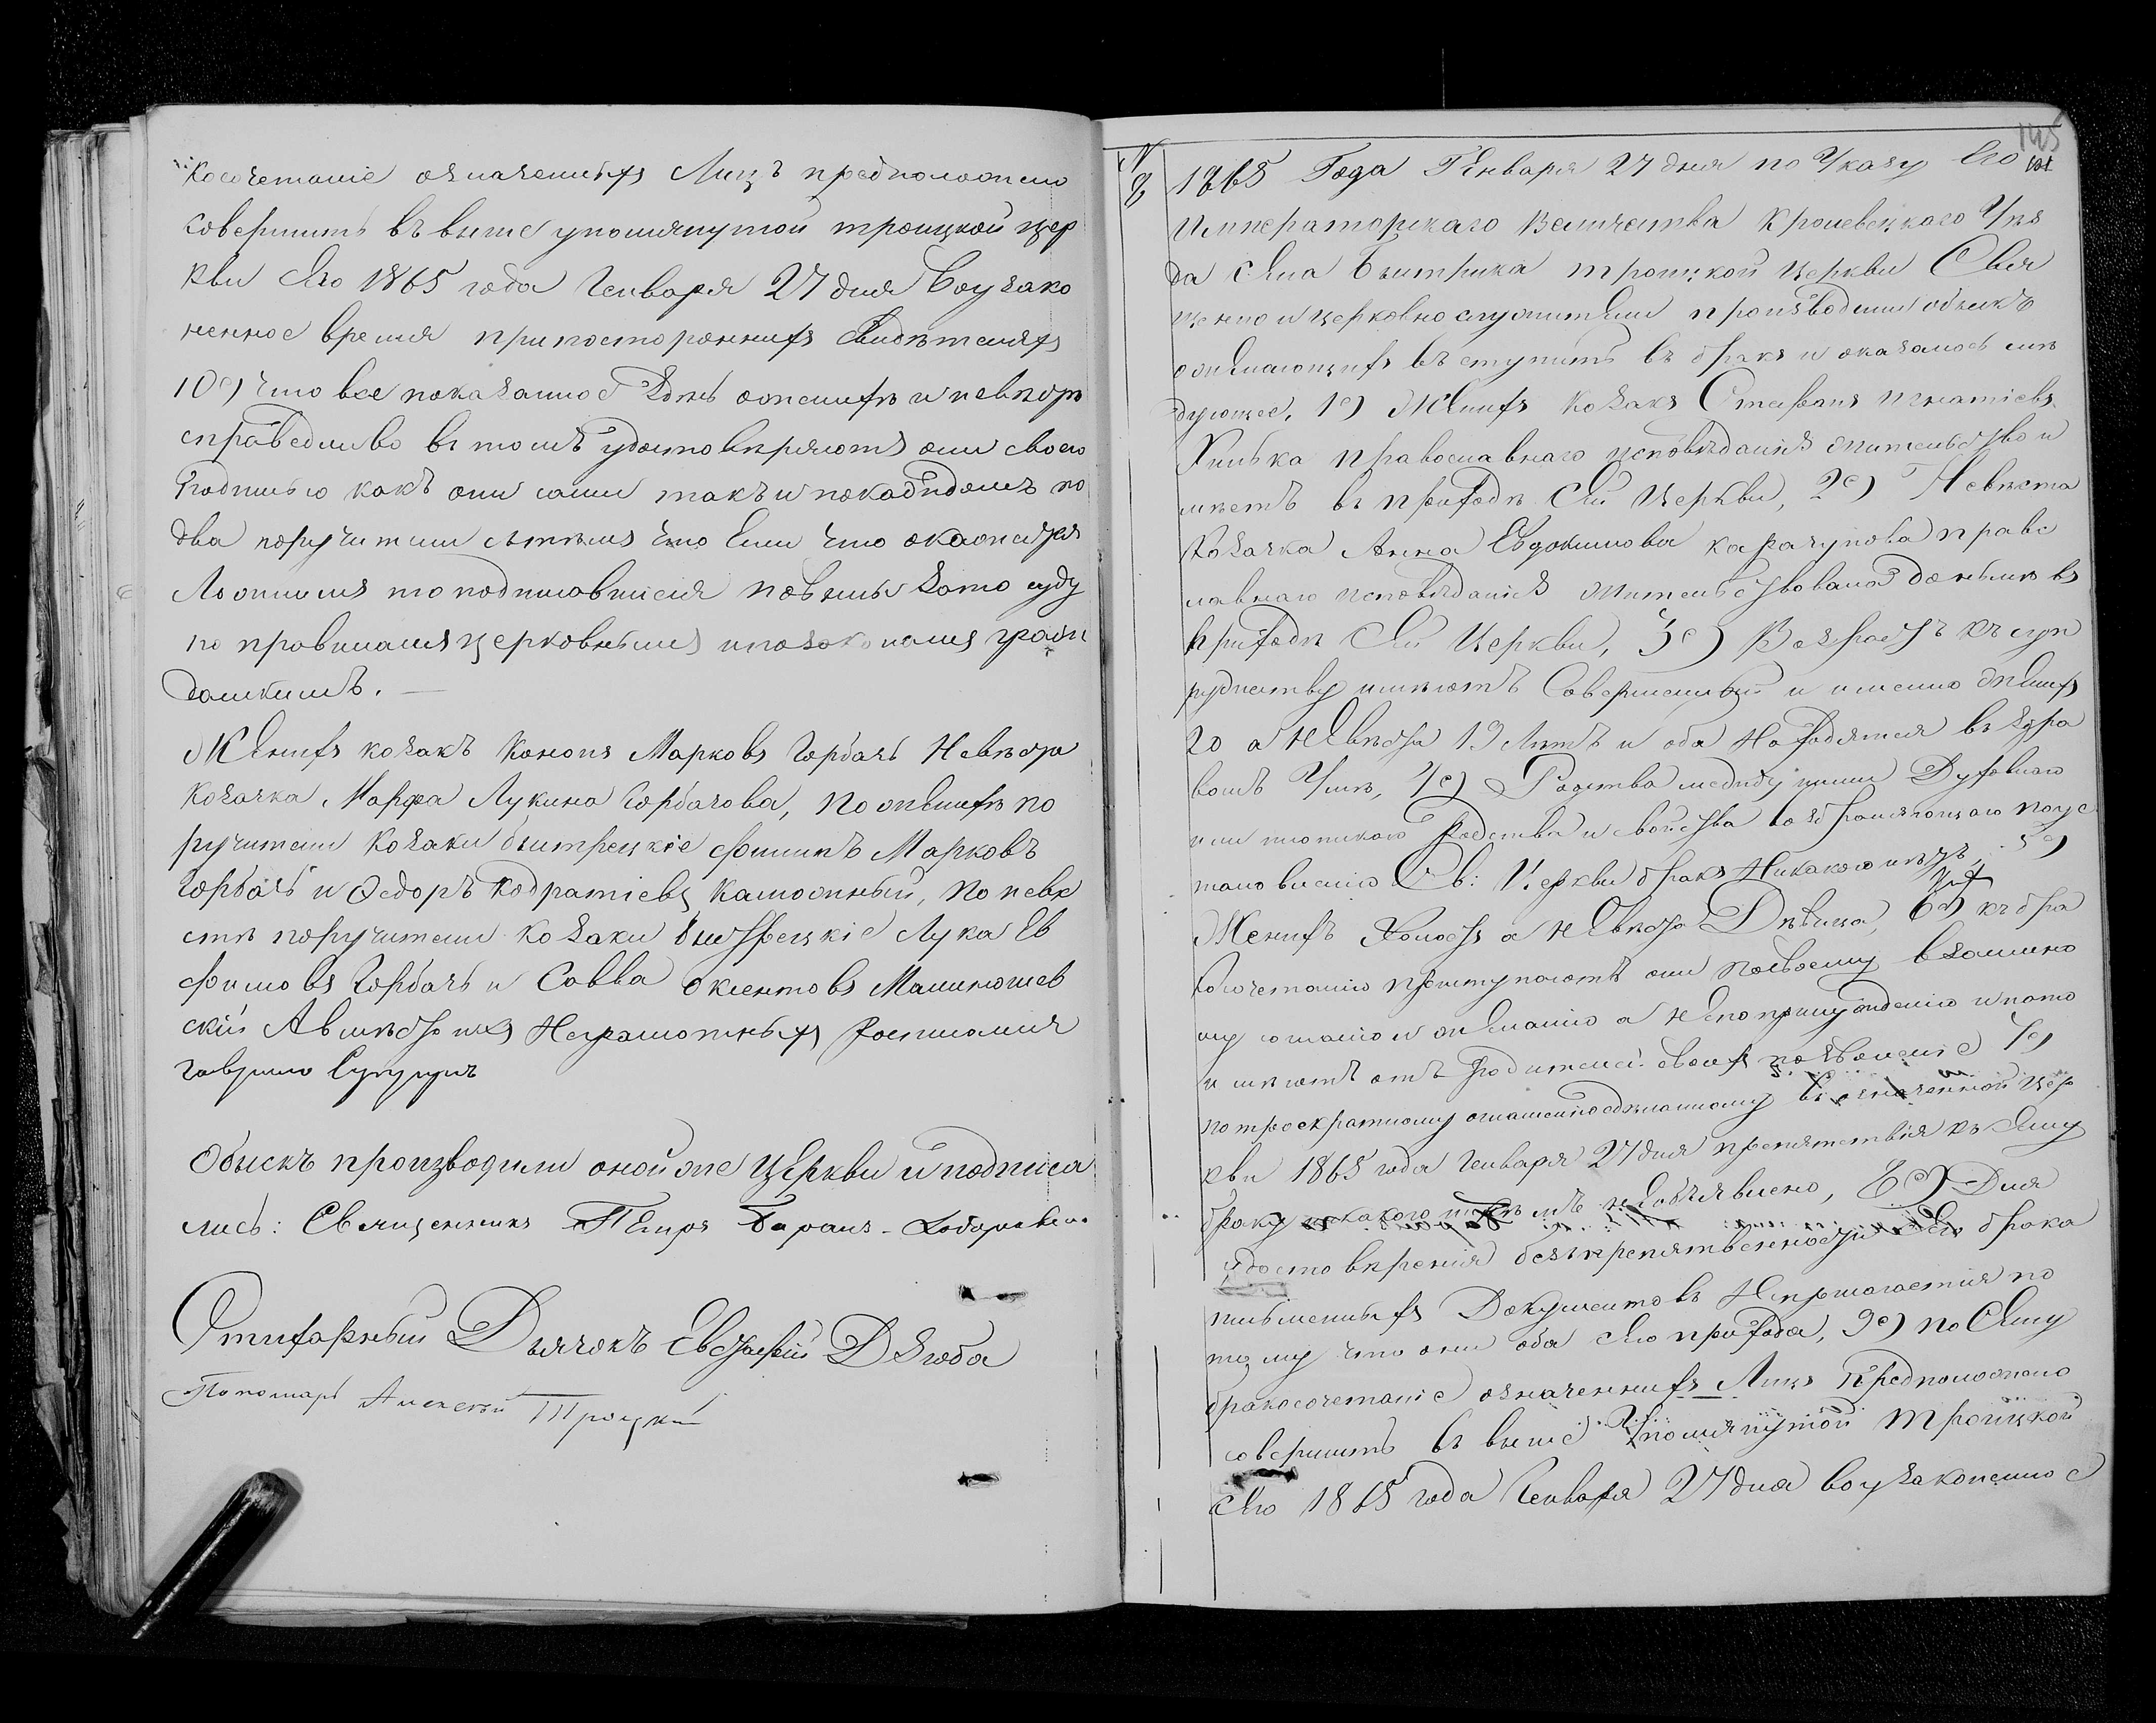 косочетаніе означенныхъ Лицъ предположено
совершить въ выше упомянутой троицкой цер
кви Сего 1865 года Генваря 27 дня воузако
ненное время при постороннихъ свидѣтеляхъ
10е) что все показанное здѣсь о женихѣ и невѣстѣ
справедливо въ томъ удостовѣряютъ они своею
подписью какъ они сами такъ и по каждомъ по
два поручители съ тѣмъ что Если что окажется
Ложнымъ то подписавшіеся повинны зато суду
по правиламъ церковнымъ и по законамъ граж
данскимъ. —
Женихъ козакъ Кононъ Марковъ Горбачъ Невѣста
Козачка Марфа Лукина Горбачова, По женихѣ по
ручители Козаки быстрецкіе филипъ Марковъ
Горбачъ и Федоръ Кодратіевъ Каможный, По невѣ
стѣ поручители Козаки быстрецкіе Лука Ев
фимовъ Горбачъ и Савва
скій А вмѣсто ихъ Неграмотныхъ росписался
Гаврило
Обыскъ производили оной же Церкви и подписа
лись: Священникъ Петръ Баранъ-
Стихарный Дьячокъ Евстафій Дзюба
Пономарь Алексѣй Троцкій
145
N 8
1865 Года Генваря 27 дня по Указу Его
Императорскаго Величества Кролевецкаго Уѣз
да села Быстрика троицкой Церкви Свя
щенно и церковно служители производили обыскъ
о желающихъ въступить въ бракъ и оказалось слѣ
дующее, 1е) Женихъ Козакъ Стефанъ Игнатіевъ
Хилька православнаго исповѣданія жительство и
мѣетъ въ приходѣ Сей Церкви, 2е) Невѣста
Козачка Анна Евдокимова Карачунова правос
лавнаго исповѣданія жительствовала донынѣ въ
приходѣ Сей Церкви, 3е) Возрастъ къ суп
ружеству имѣютъ Совершенный и именно женихъ
20 а невѣста 19 Лѣтъ и оба Находятся въ здра
вомъ Умѣ, 4е) Родства между ними Духовнаго
или плотскаго родства и свойства возбраняющаго по ус
тановленію Св: Церкви бракъ Никакого нѣтъ, 5е)
Женихъ Холостъ а невѣста Дѣвица, 6е) къ бра
косочетанію приступаютъ они по своему взаимно
му согласію и желанію а не по принужденію и на то
имѣютъ отъ родителей своихъ позволеніе 7е)
по троекратному оглашенію сдѣланному въ означенной цер
кви 1865 года Генваря 27 дня препятствія къ Сему
браку никакого никѣмъ не объявлено, 8е) Для
удостовѣренія безпрепятственности сего брака
письменныхъ Документовъ Неприлагается по
тому что они оба сего прихода, 9е) по Сему
бракосочетаніе означенныхъ Лицъ Предположено
совершить въ выше Упомянутой Троицкой
Сего 1865 года Генваря 27 дня воузаконенное